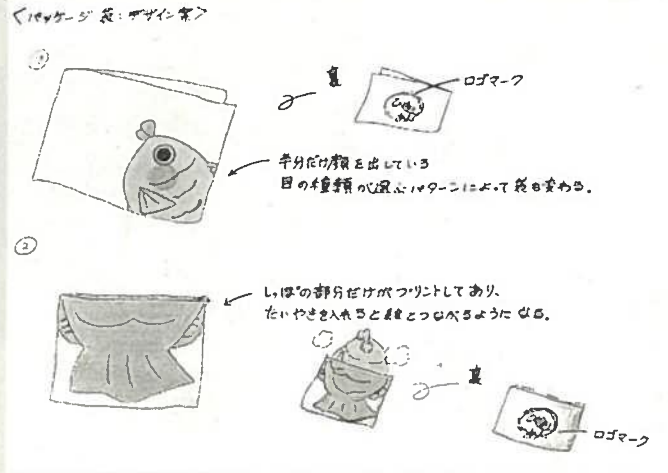 ＜パッケージ 袋：デザイン案＞
①
裏
ロゴマーク
半分だけ顔を出している
目の種類が選ぶパターンによって袋も変わる。
②
しっぽの部分だけがプリントしてあり、
たいやきを入れると絵とつながるようになる。
裏
ロゴマーク